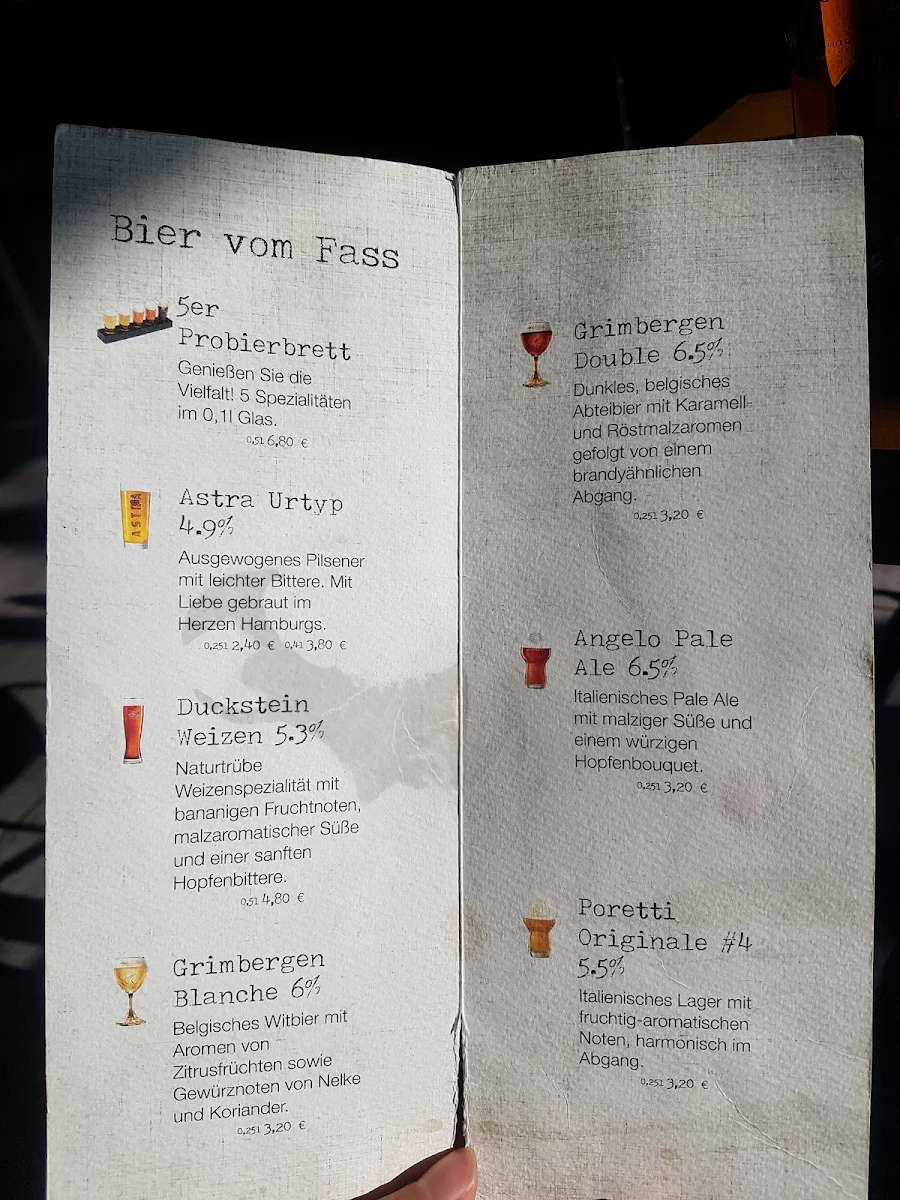 Bier vom Fass
5er
Probierbrett
Genießen Sie die
Vielfalt! 5 Spezialitäten
im 0,1l Glas.
0,5l 6,80 €
Astra Urtyp
4.9%
Ausgewogenes Pilsener
mit leichter Bittere. Mit
Liebe gebraut im
Herzen Hamburgs.
0,25l 2,40 € 0,4l 3,80 €
Duckstein
Weizen 5.3%
Naturtrübe
Weizenspezialität mit
bananigen Fruchtnoten,
malzaromatischer Süße
und einer sanften
Hopfenbittere.
0,5l 4,80 €
Grimbergen
Blanche 6%
Belgisches Witbier mit
Aromen von
Zitrusfrüchten sowie
Gewürznoten von Nelke
und Koriander.
0,25l 3,20 €
Grimbergen
Double 6.5%
Dunkles, belgisches
Abteibier mit Karamell-
und Röstmalzaromen
gefolgt von einem
brandyähnlichen
Abgang.
0,25l 3,20 €
Angelo Pale
Ale 6.5%
Italienisches Pale Ale
mit malziger Süße und
einem würzigen
Hopfenbouquet.
0,25l 3,20 €
Poretti
Originale #4
5.5%
Italienisches Lager mit
fruchtig-aromatischen
Noten, harmonisch im
Abgang.
0,25l 3,20 €
ASTRA